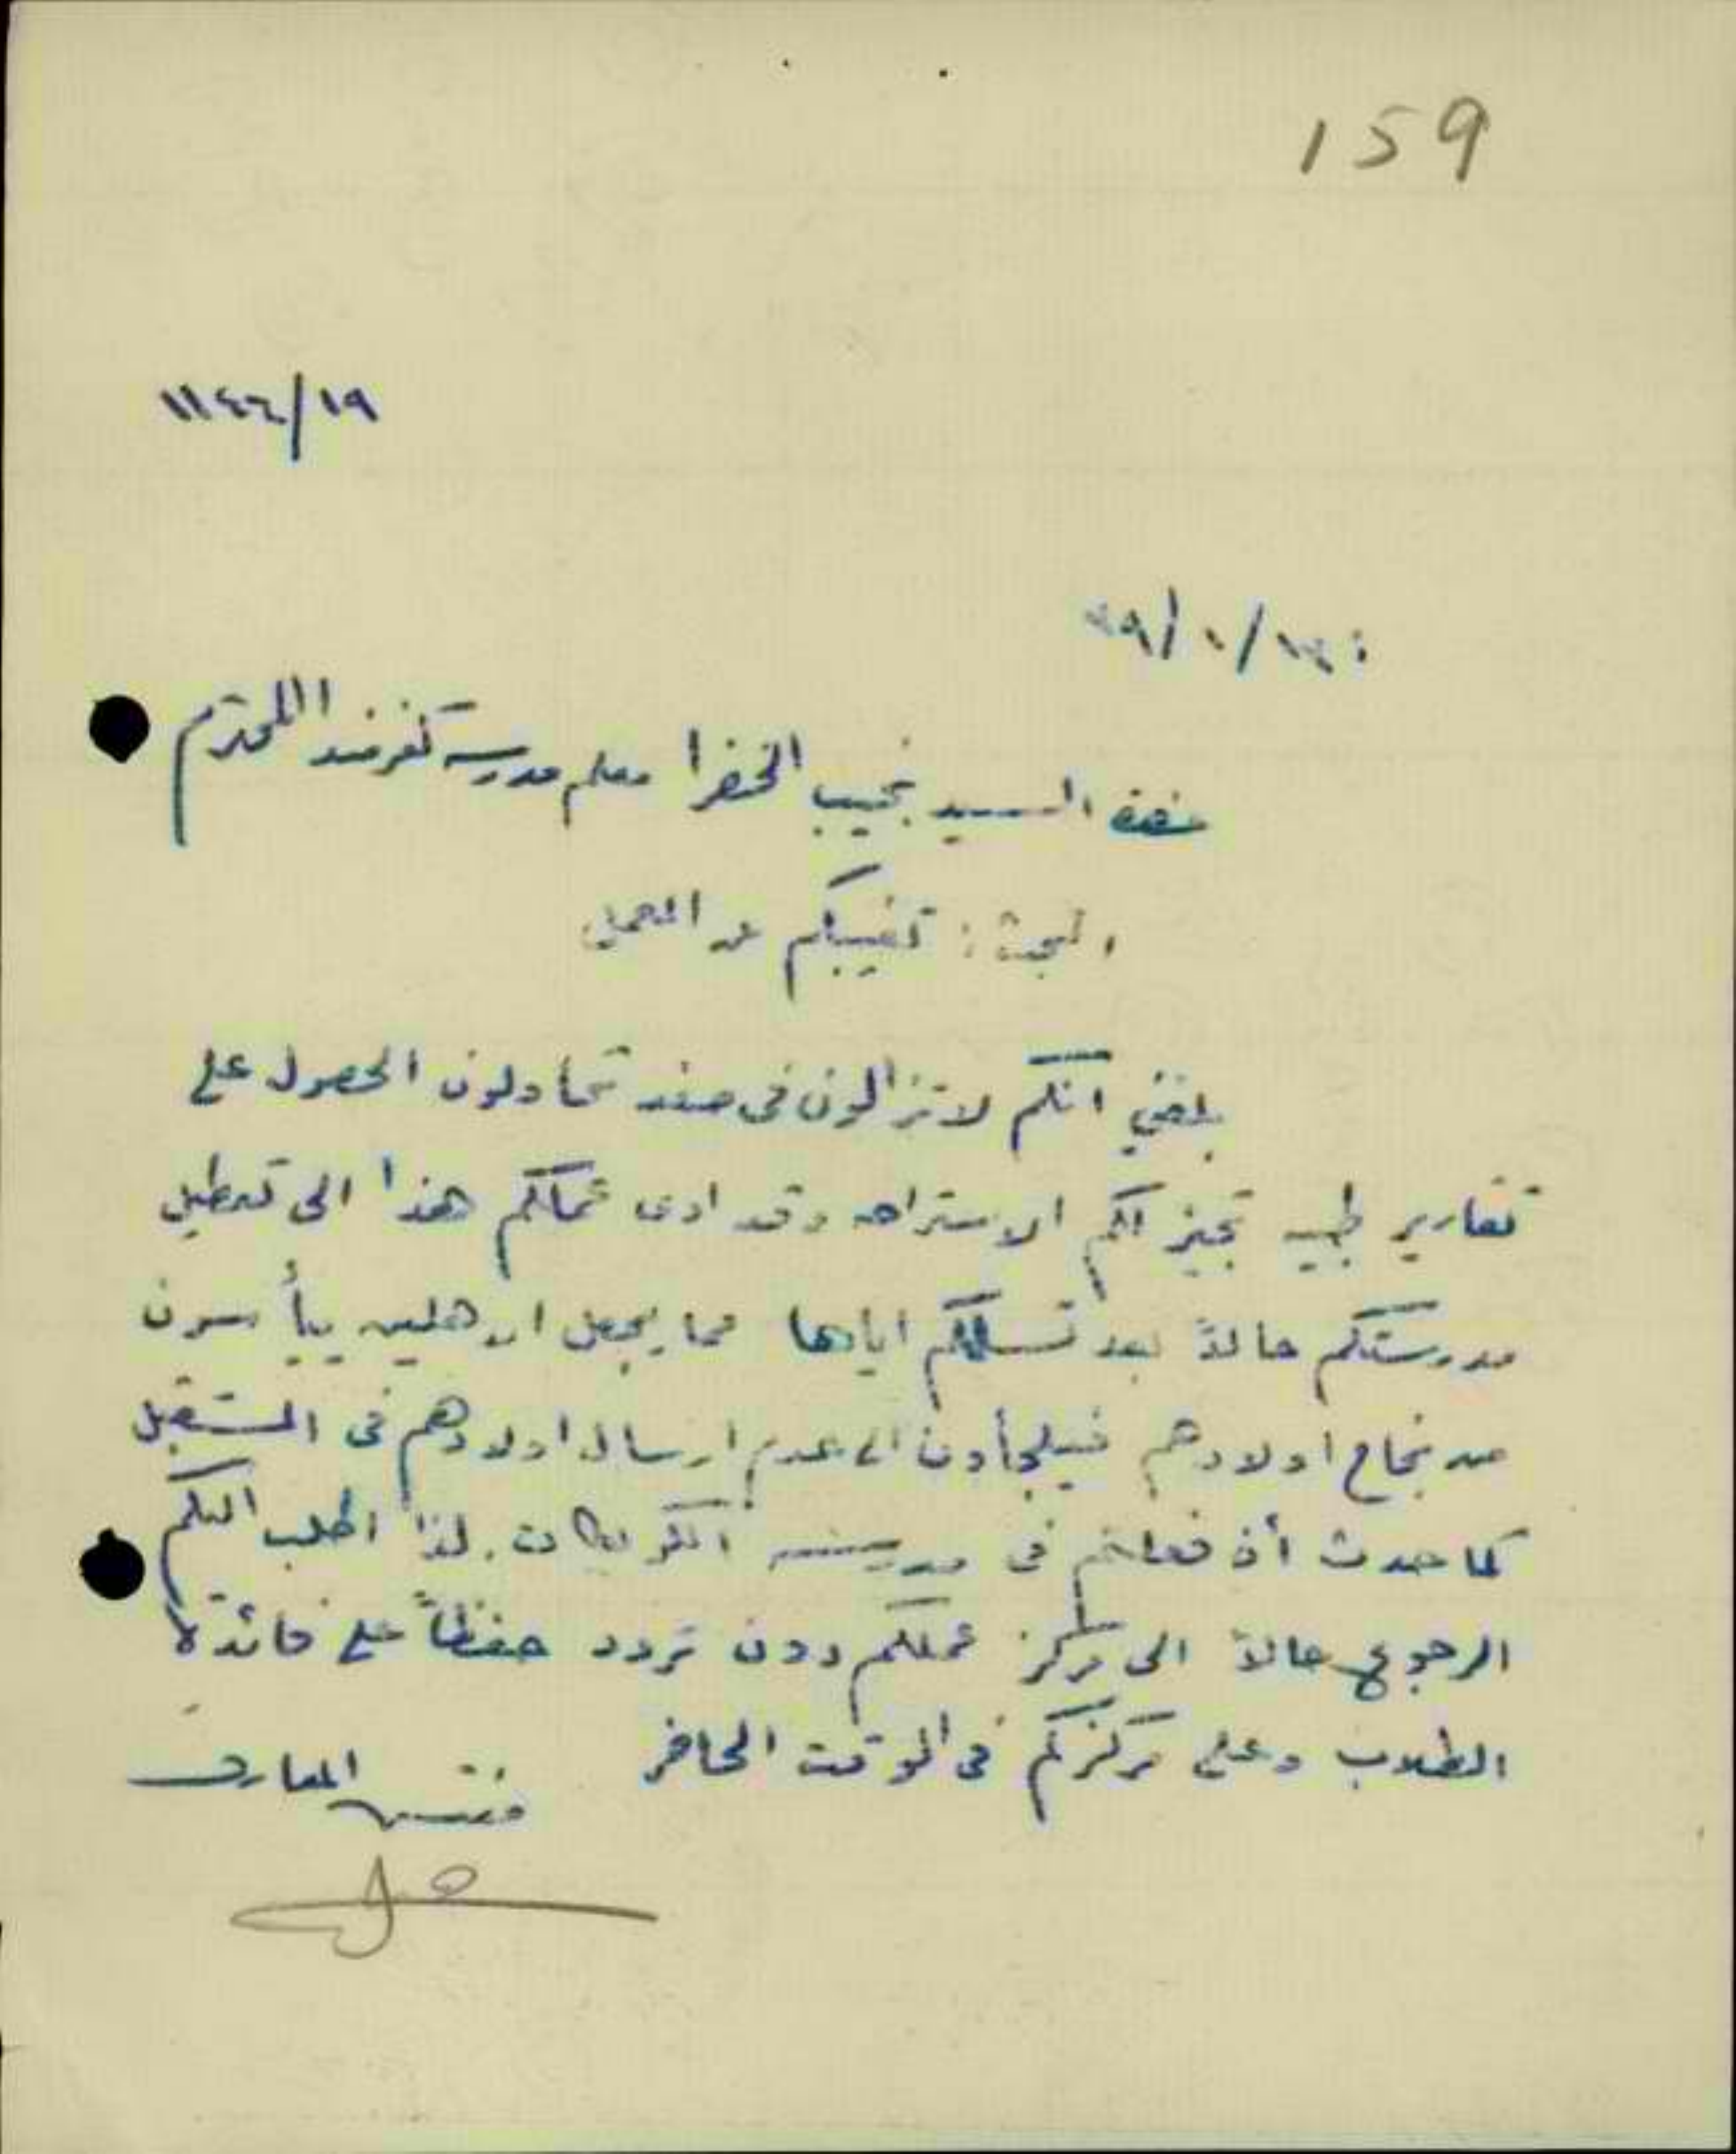 159
١١٤٤٦/١٩
حضرة السيد نجيب الخضرا معلم مدرسة كفرمندا المحترم
البحث : تغيبكم عن العمل
بلغني انكم لا تزالون في صفد تحاولون الحصول على
تقارير طبيه تجيز لكم الاستراحه وقد ادى عملكم هذا الى تعطيل
مدرستكم حالاً بعد تسلمكم اياها مما يجعل الاهلين ييأسون
من نجاح اولادهم فيلجأون الى عدم ارسال اولادهم في المستقبل
كما حدث أن فعلتم في مدرسة . لذا اطلب اليكم
الرجوع حالاً الى مركز عملكم دون تردد حفظاً على فائدة
الطلاب وعلى مركزكم في الوقت الحاضر
مفتش المعارف